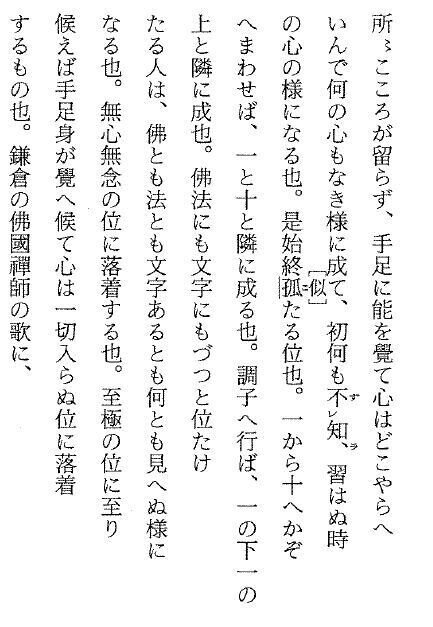 所〻こころが留らず、手足に能を覺て心はどこやらへ
いんで何の心もなき様に成て、初何も不レ知、習はぬ時
の心の様になる也。是始終孤〔似〕たる位也。一から十へかぞ
へまわせば、一と十と隣に成る也。調子へ行ば、一の下一の
上と隣に成也。佛法にも文字にもづつと位たけ
たる人は、佛とも法とも文字あるとも何とも見へぬ様に
なる也。無心無念の位に落着する也。至極の位に至り
候えば手足身が覺へ候て心は一切入らぬ位に落着
するもの也。鎌倉の佛國禪師の歌に、